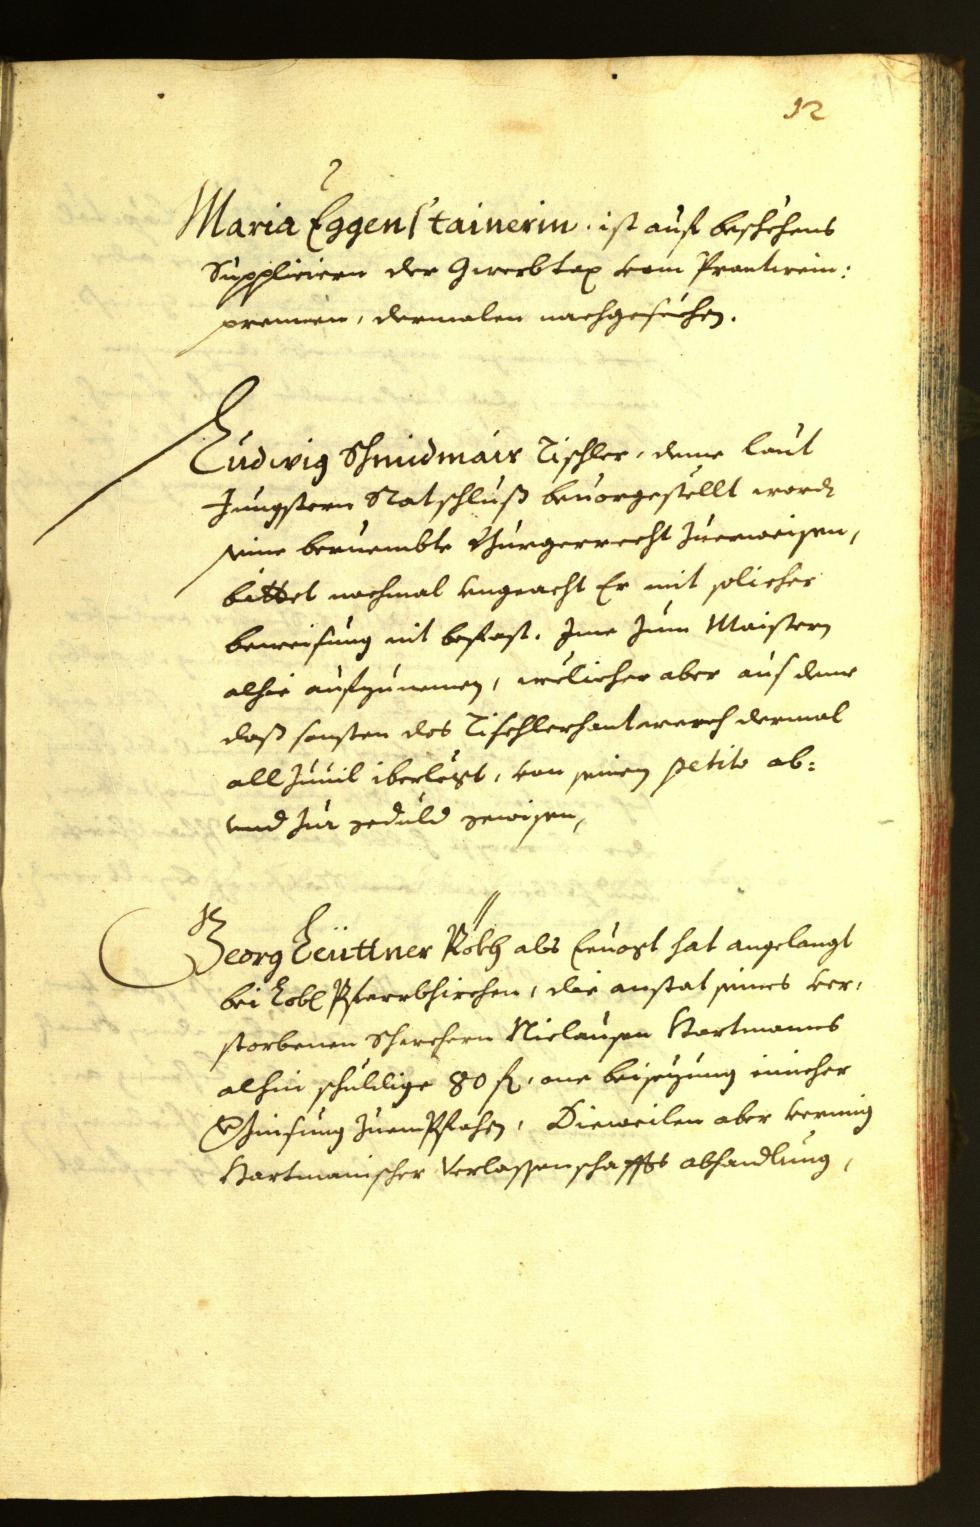 12
Maria Eggenstainerin ist auf beschehens
Suppliciern der Gwerbtax vom Prantwein:
prennen, dermalen nachgesechen.
Ludwig Schmidmair Tischler, deme laut
Jungstern Ratschluß beuorgestellt word
seine beruembte Burgerrecht zuerweisen,
bittet nochmal vngeacht Er mit solicher
beweisung nit befast, Jme zum Maistern
alhie aufzunemen, welicher aber aus deme
daß sonsten das Tischlerhantwerch dermal
all zuuil iberlegt, von seinem petito ab:
vnd zur geduld gewisen,
Georg Leüttner Köch als hat angelangt
bei Lobl Pfarrkhirchen, die anstat seines ver,
storbenen Schwehern Niclausen Hartmanns
alhin schuldige 80 f, one beisezung einicher
Zinsung Dieweilen aber vermig
Hartmanischer Verlassenschaffts abhandlung,